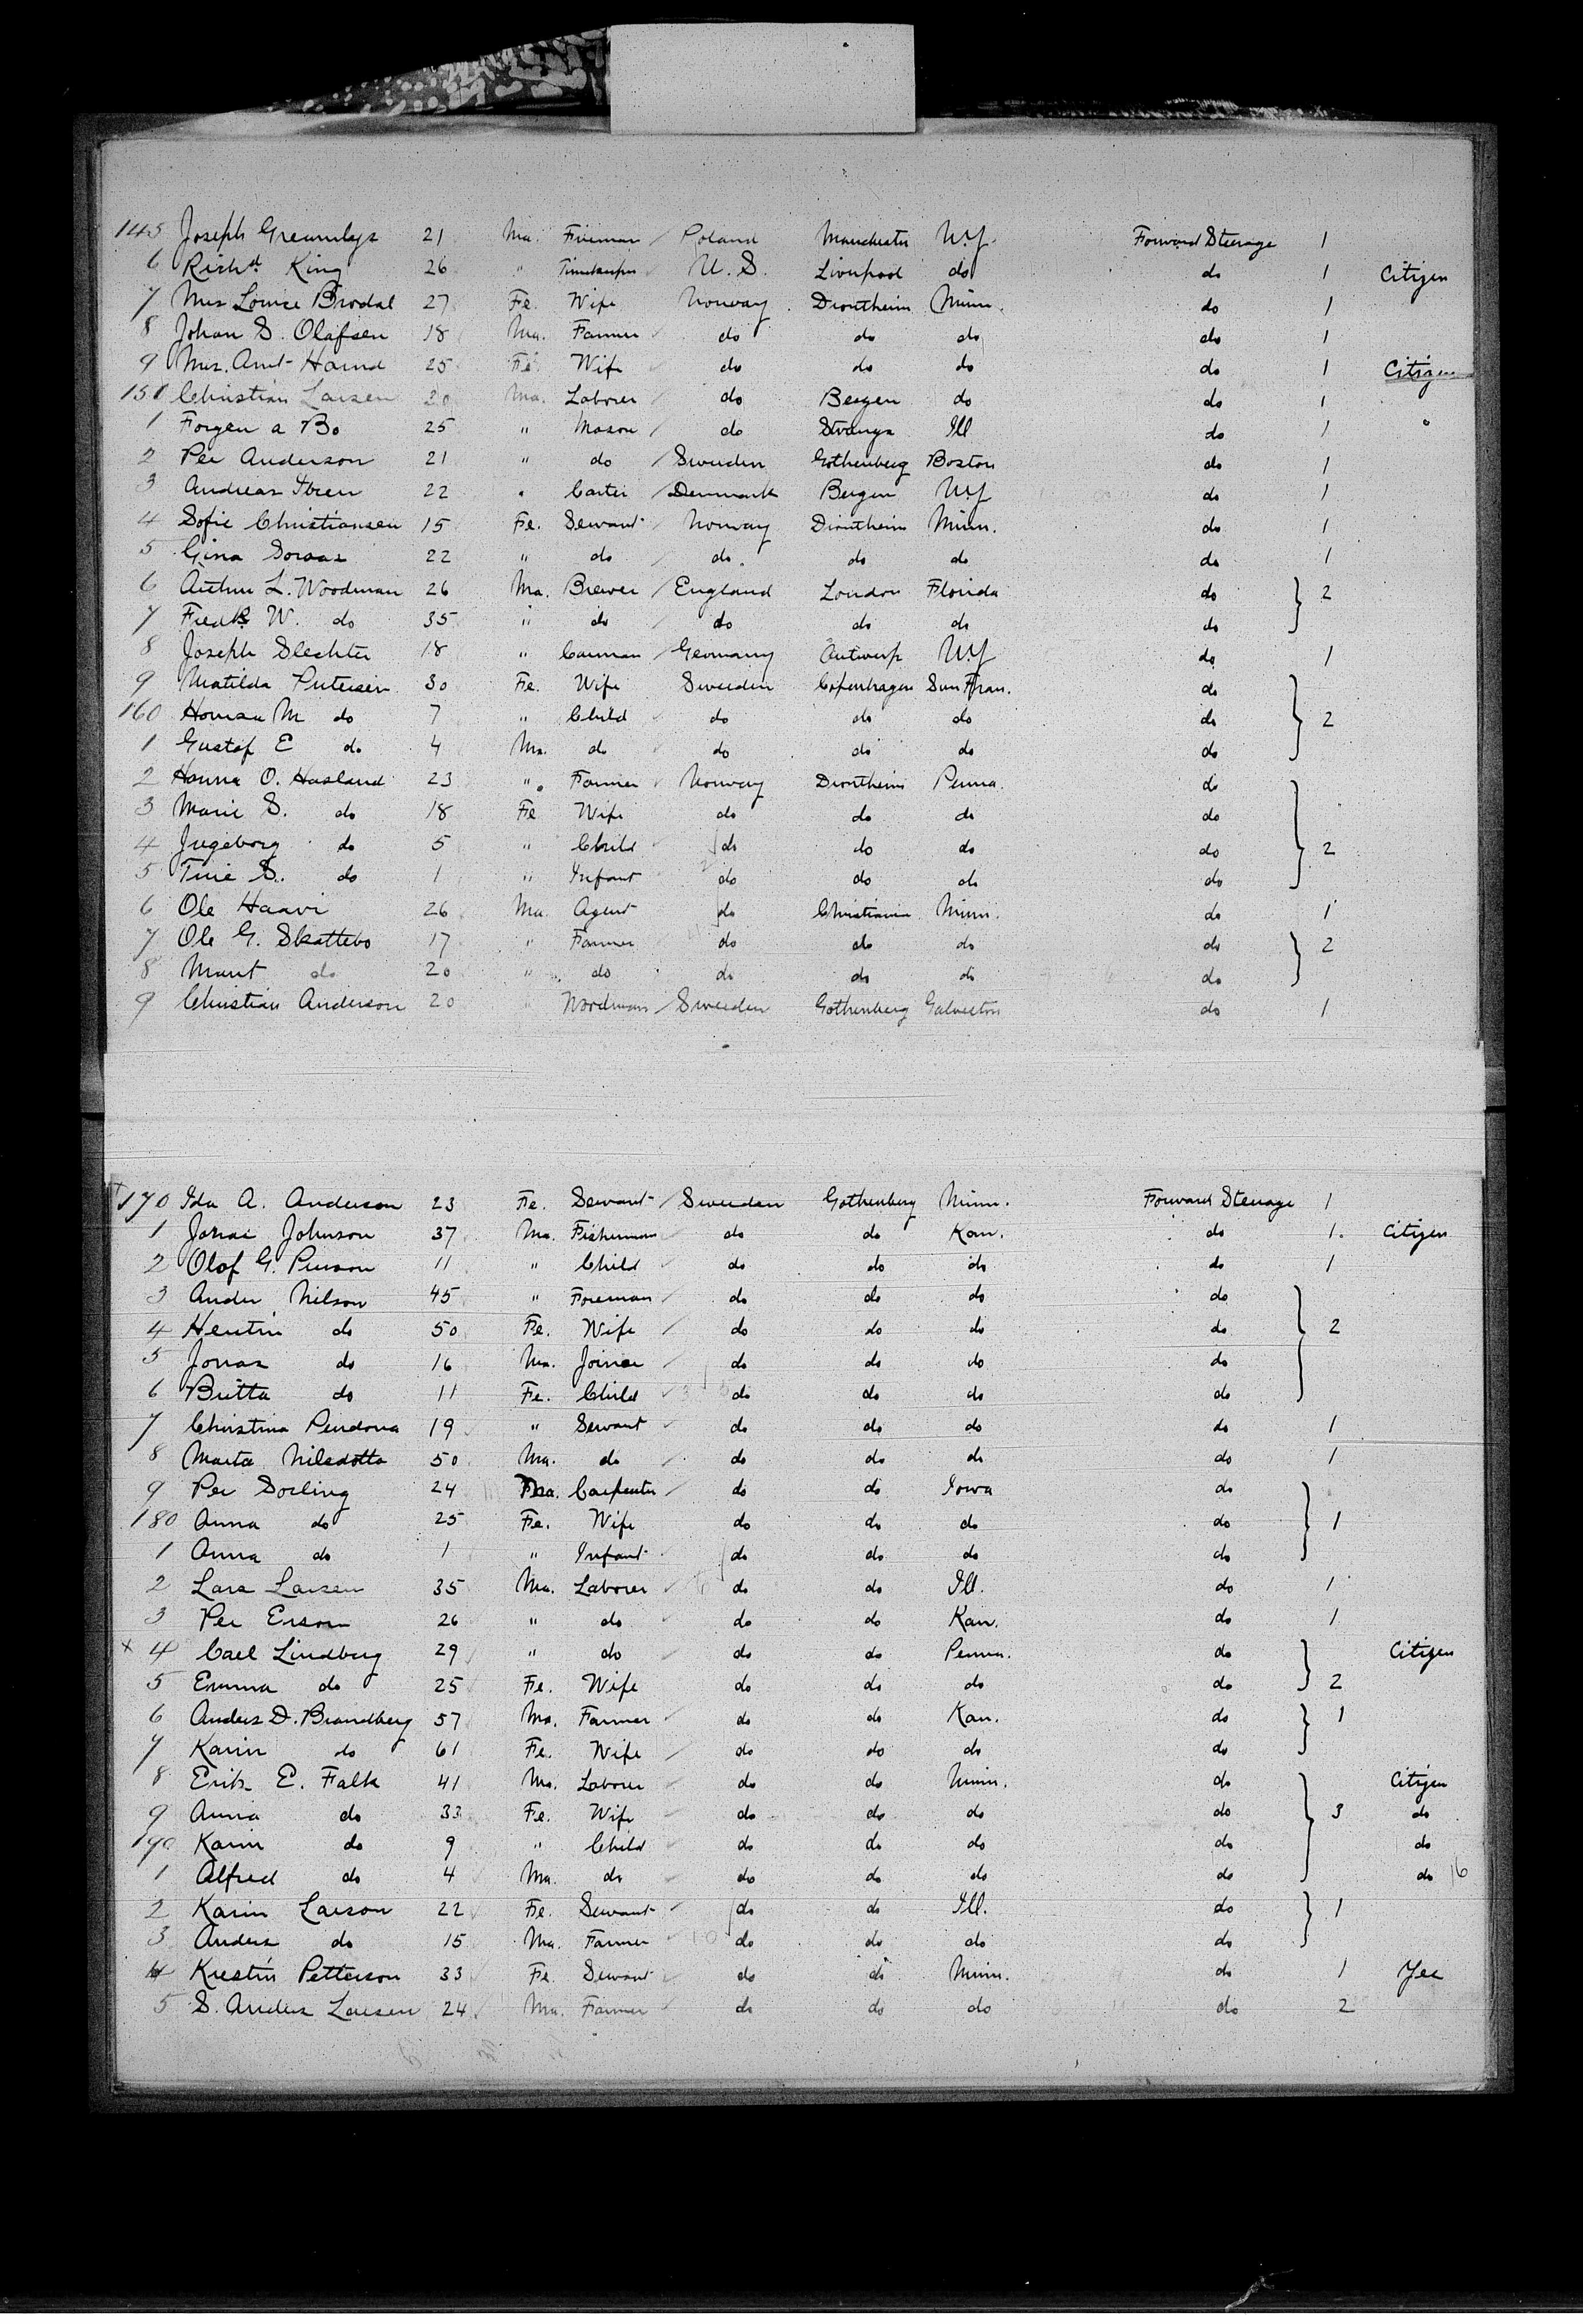 145 Joseph 21 Ma. Fireman Poland Manchester N.Y. Forward Steerage 1
6 Richd. King 26 " Timekeeper U.S. Liverpool do do 1 Citizen
7 Mrs Louise Brodal 27 Fe. Wife Norway Drontheim Minn. do 1
8 Johan S. Olafsen 18 Ma. Farmer do do do do 1
9 Mrs. Amt Hamd 25 Fe. Wife do do do do 1 Citizen
150 Christian Larsen 20 Ma. Laborer do Bergen do do 1
1 Forgen a Bo 25 " Mason do Ill do 1 "
2 Per Anderson 21 " do Sweeden Gothenberg Boston do 1
3 Andreas Ibsen 22 " Carter Denmark Bergen N.Y do 1
4 Sofie Christiansen 15 Fe. Servant Norway Drontheim Minn. do 1
5 Gina Soraas 22 " do do. do do do 1
6 Arthur L. Woodman 26 Ma. Brewer England London Florida do 2
7 Fredk W. do 35 " do do do do do
8 Joseph Slechter 18 " Carman Germany Antwerp N.Y do 1
9 Matilda Petersen 30 Fe. Wife Sweeden Copenhagen San Fran. do
160 M do 7 " Child do do do do 2
1 Gustaf E do 4 Ma. do do do do do
2 Hanna O. Hasland 23 " Farmer Norway Drontheim Penna. do
3 Marie S. do 18 Fe Wife do do do do
4 Ingeborg do 5 " Child do do do do 2
5 Tine S. do 1 " Infant do do do do
6 Ole Haavi 26 Ma. Agent do Christiania Minn. do 1
7 Ole G. Skattebo 17 " Farmer do do do do 2
8 Marit do 20 " do do do do do
9 Christian Anderson 20 " Woodman Sweeden Gothenberg Galveston do 1
170 Ida A. Anderson 23 Fe. Servant Sweeden Gothenberg Minn. Forward Steerage 1
1 Jonas Johnson 37 Ma. Fisherman do do Kan. do 1. Citizen
2 Olof G. Person 11 " Child do do do do 1
3 Ander Nilson 45 " Foreman do do do do
4 Kerstin do 50 Fe. Wife do do do do 2
5 Jonas do 16 Ma. Joiner do do do do
6 Britta do 11 Fe. Child do do do do
7 Christina Persdona 19 " Servant do do do do 1
8 Marta Nilsdotta 50 Ma. do do do do do 1
9 Per Sorling 24 Ma. Carpenter do do Iowa do
180 Anna do 25 Fe. Wife do do do do 1
1 Anna do 1 " Infant do do do do
2 Lars Larsen 35 Ma. Laborer do do Ill. do 1
3 Per Erson 26 " do do do Kan. do 1
x 4 Carl Lindberg 29 " do do do Penna. do Citizen
5 Emma do 25 Fe. Wife do do do do 2
6 Anders D. Brandberg 57 Ma. Farmer do do Kan. do 1
7 Karin do 61 Fe. Wife do do do do
8 Erik E. Falk 41 Ma. Laborer do do Minn. do Citizen
9 Anna do 33 Fe. Wife do do do do 3 do
190 Karin do 9 " Child do do do do do
1 Alfred do 4 Ma. do do do do do do 16
2 Karin Larson 22 Fe. Servant do do Ill. do 1
3 Anders do 15 Ma. Farmer do do do do
4 Krestin Petterson 33 Fe. Servant do do Minn. do 1 Yes
5 S. Anders Larsen 24 Ma. Farmer do do do do 2